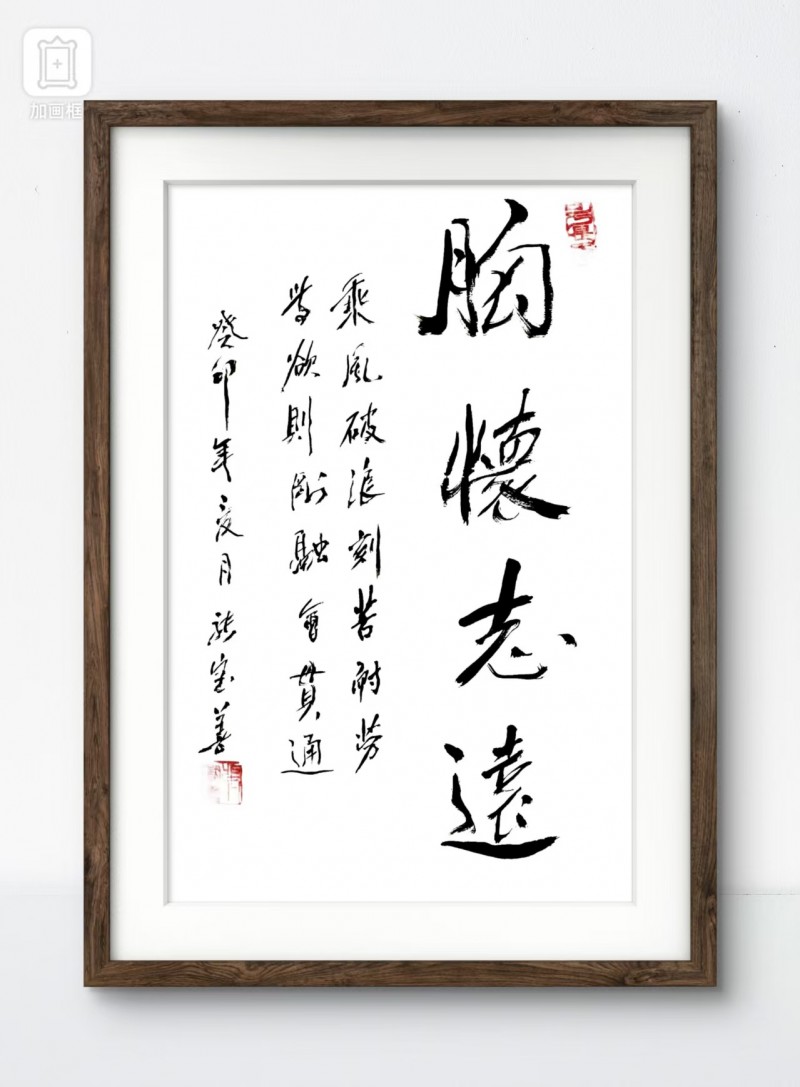 加画框
胸懷志遠
乘風破浪刻苦耐勞
無欲則剛融會貫通
癸卯年夏月張宝善